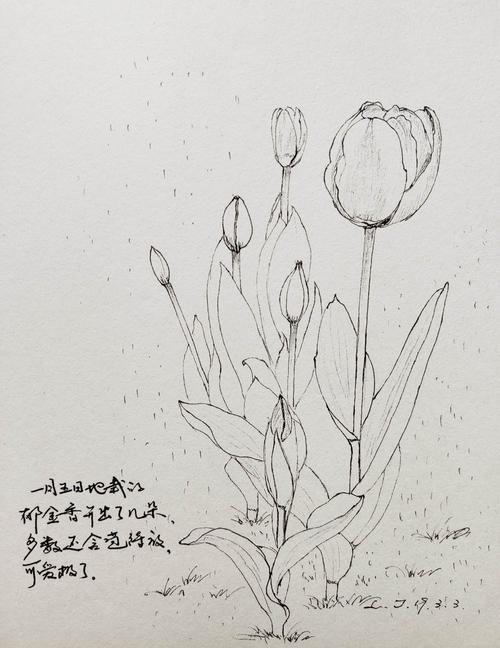 一月五日地栽的
郁金香开出了几朵，
多数还含苞待放，
可爱极了。
L. J. 19. 3. 3.